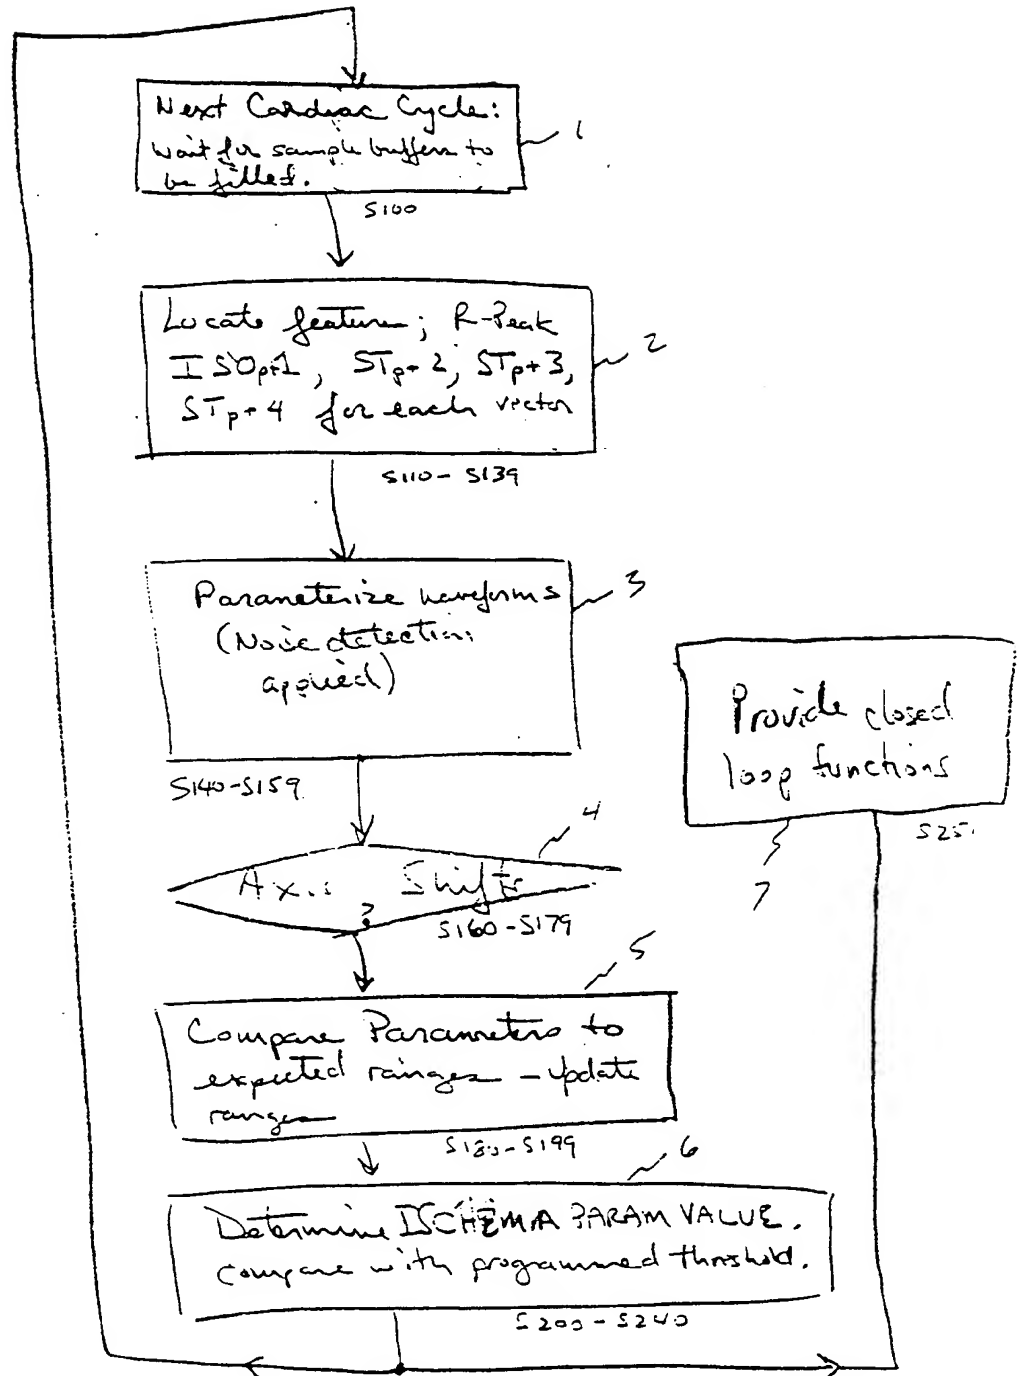 Next Cardiac Cycle:
wait for sample buffers to
be filled.
1
S100
Locate feature; R-Peak
ISOp+1, STp+2, STp+3,
STp+4 for each vector
2
S110-S139
Parameterize waveforms
(Noise detection
applied)
3
S140-S159
Provide closed
loop functions
S25
7
4
Axis Shift
?
S160-S179
5
Compare Parameters to
expected ranges - update
ranges
S180-S199
6
Determine ISCHEMIA PARAM VALUE.
compare with programmed threshold.
S200-S240